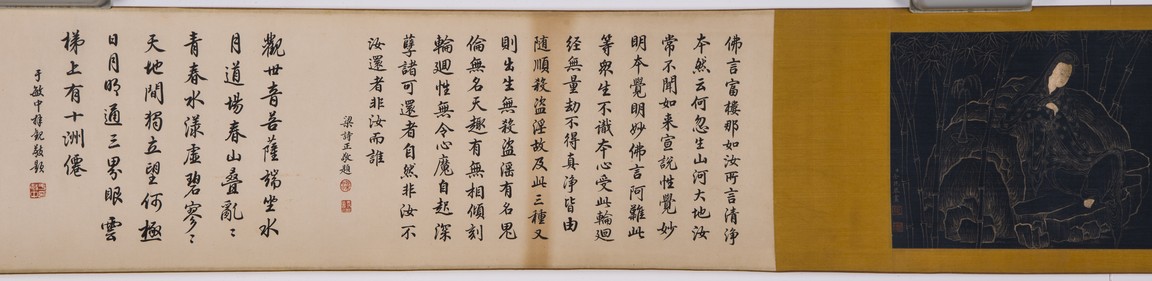 佛言富樓那如汝所言清淨
本然云何忽生山河大地汝
常不聞如来宣說性覺妙
明本覺明妙佛言阿難此
等衆生不識本心受此輪迴
经無量劫不得真淨皆由
随順殺盜淫故及此三種又
則出生無殺盜淫有名鬼
倫無名天趣有無相傾刻
輪迴性無令心魔自起深
孽諸可還者自然非汝不
汝還者非汝而誰
梁詩正敬題
觀世音菩薩端坐水
月道場春山疊亂〻
青春水漾虛碧寥〻
天地間獨立望何極
日月明通三界眼雲
梯上有十洲僊
于敏中敬題